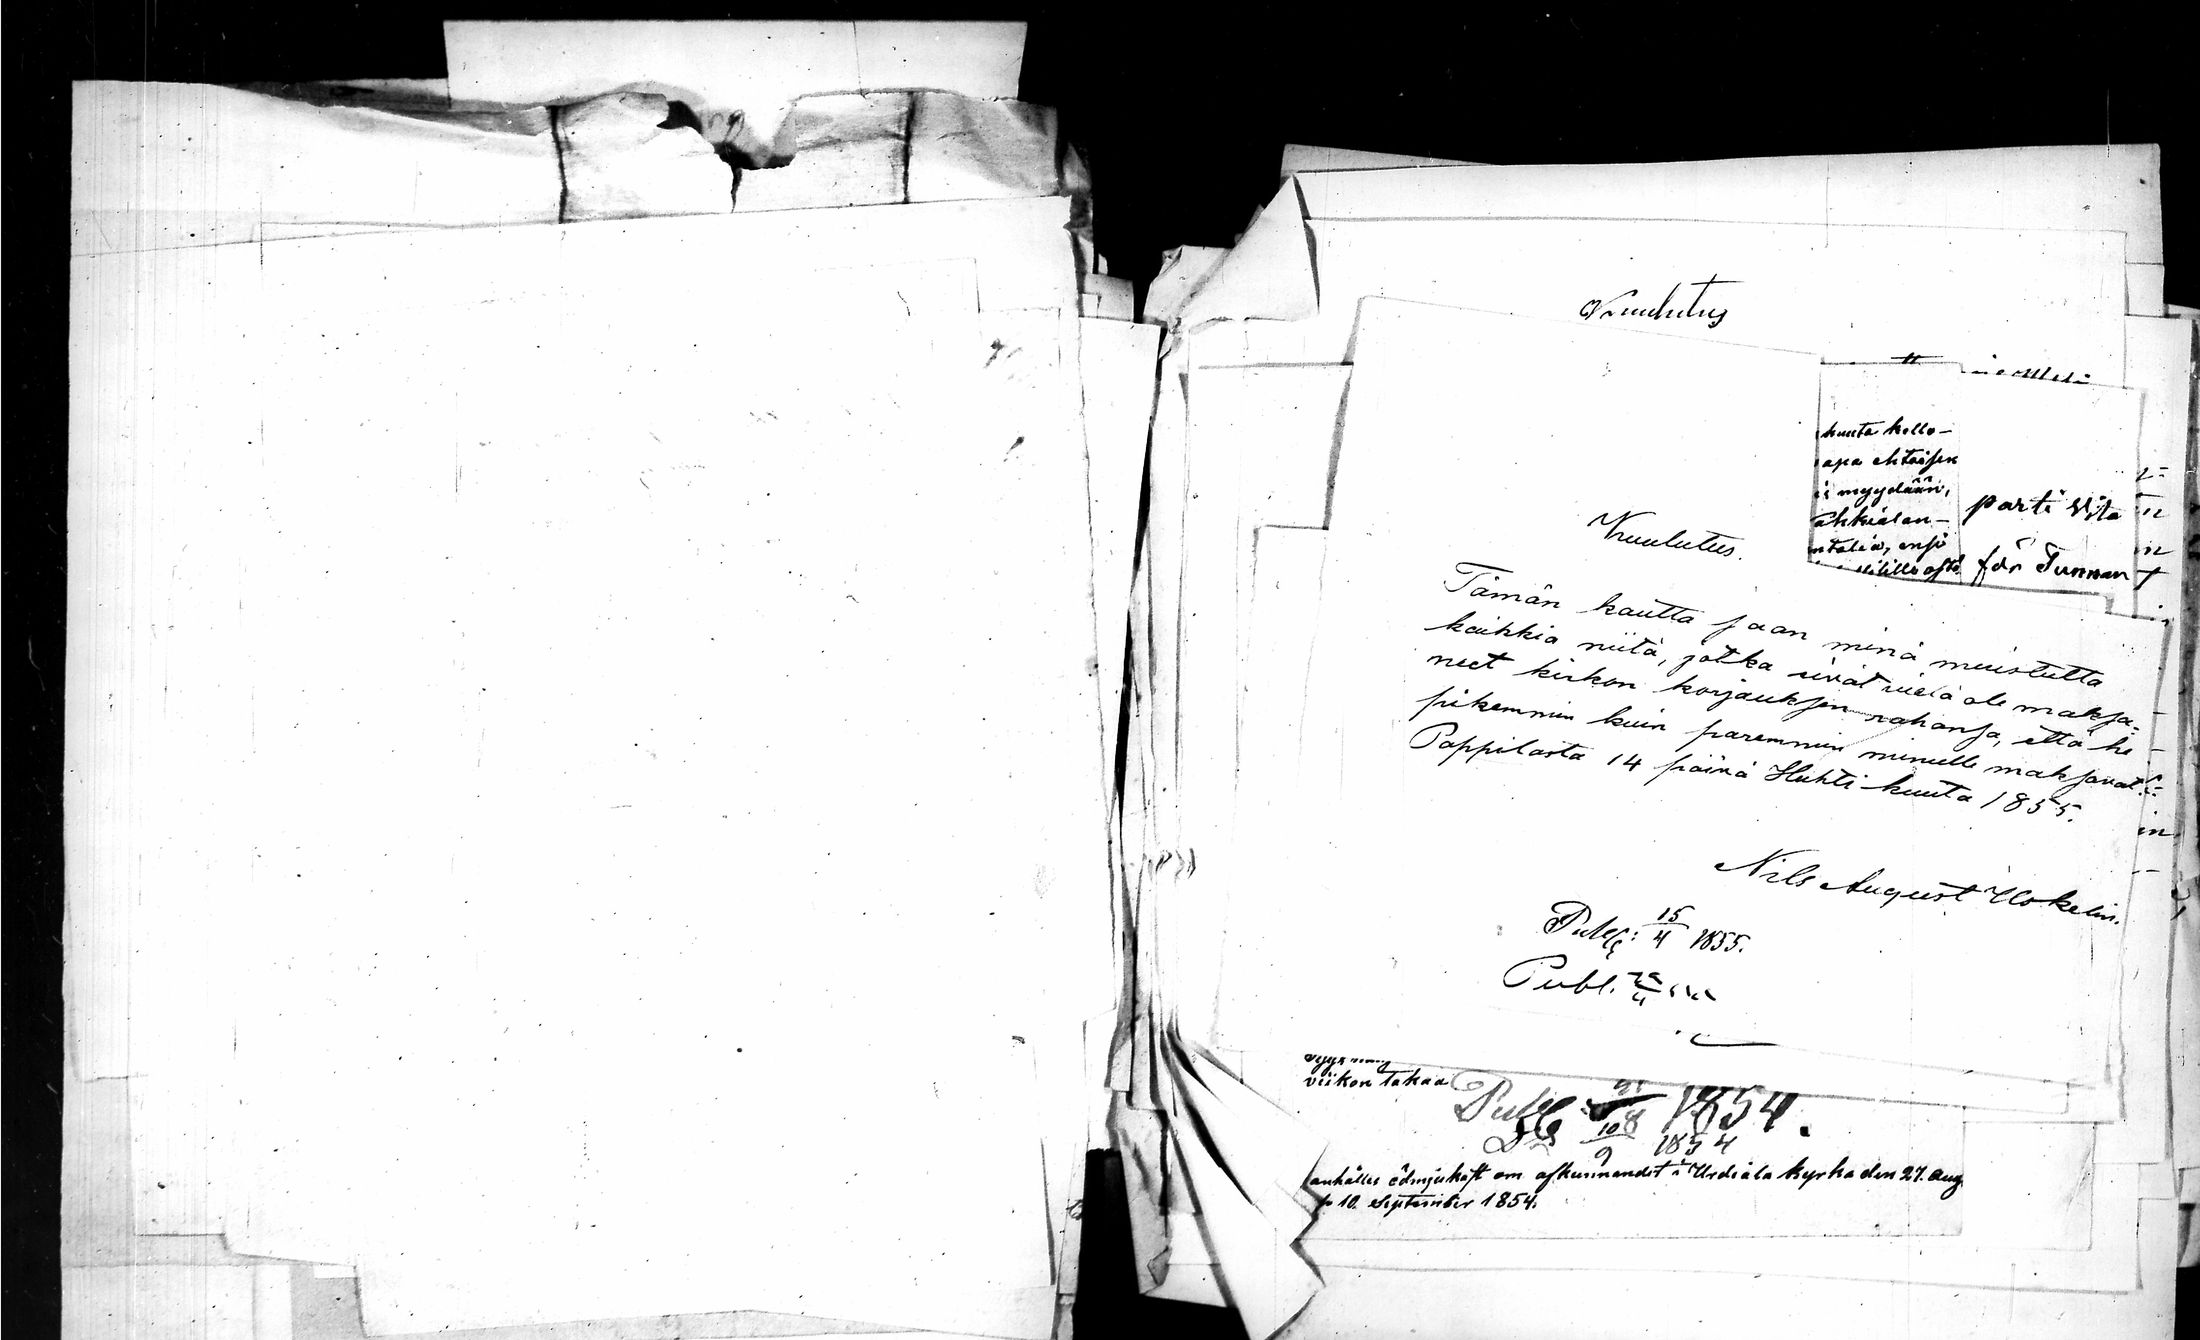 Kuulutus
kuuta kello-
apa ehtoisen
myydään,
parti Vita
för Tunnan
Kuulutus.
Tämän kautta saan minä muistutta
kaikkia niitä, jotka eivät vielä ole maksa-
neet kirkon korjauksen rahansa, että he
pikemmin kuin paremmin minulle maksavat.
Pappilasta 14 päivä Huhti-kuuta 1855.
Nils August
Publ: 15/4 1855.
Publ.
viikon takaa
Publ 1854.
10/9 1854
anhålles ödmjukast om afkunnandet i Urdiala kyrka den 27. Aug
10. September 1854.